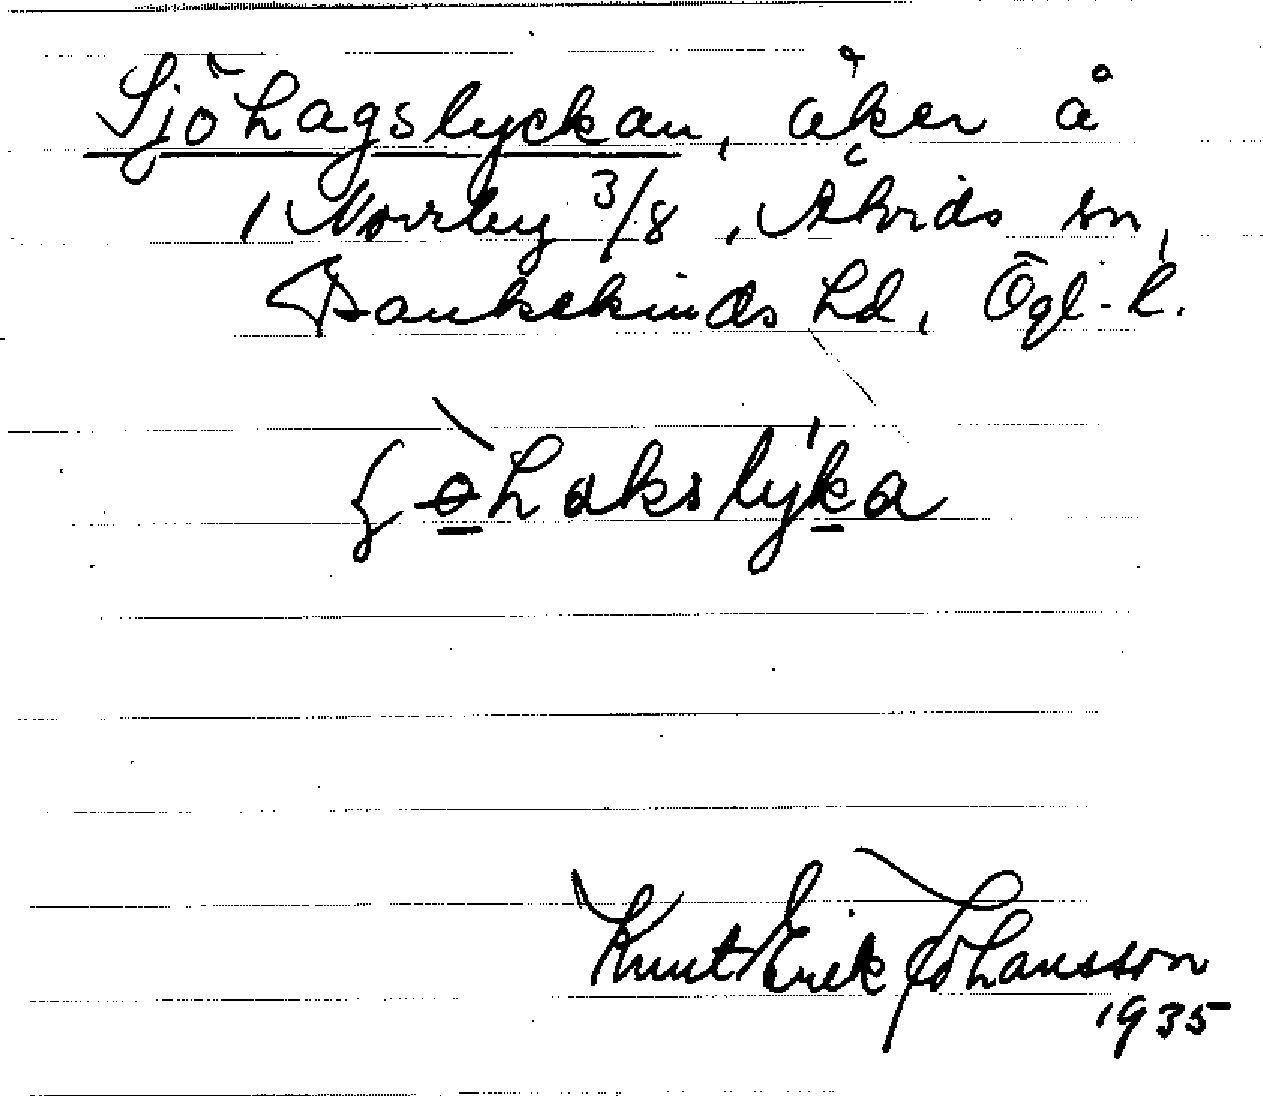 Sjöhagslyckan, åker å
1 Norrby 3/8, Åtvids sn,
Bankekinds hd, Ögl. l.
ʃöhakslýka
Knut Erik Johansson
1935